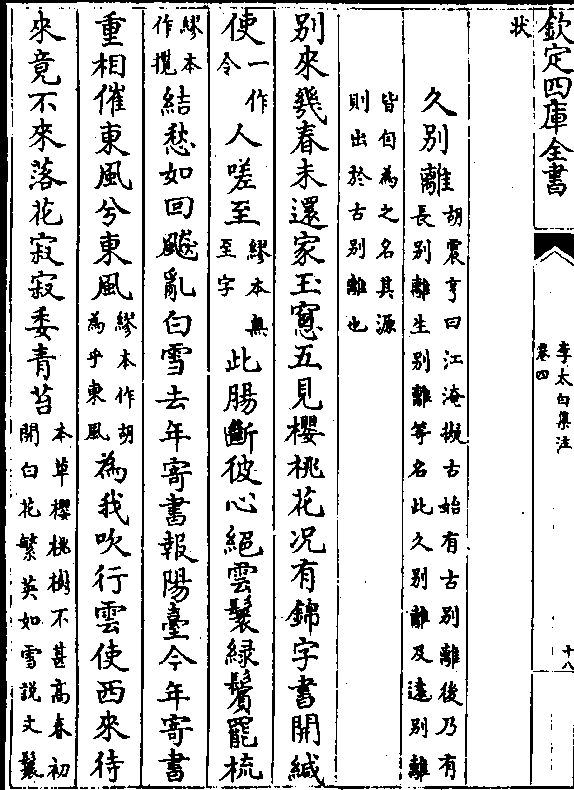 欽定四庫全書
李太白集注
卷四
十八
状
久別離
胡震亨曰江淹擬古始有古別離後乃有
長別離生別離等名此久別離及遠別離
皆自為之名其源
則出於古別離也
別來幾春未還家玉窓五見櫻桃花况有錦字書開緘
使
一作
令
人嗟至
繆本無
至字
此腸斷彼心絕雲鬟緑鬢罷梳
繆本
作攬
結愁如回飈亂白雪去年寄書報陽臺今年寄書
重相催東風兮東風
繆本作胡
為乎東風
為我吹行雲使西來待
來竟不來落花寂寂委青苔
本草櫻桃樹不甚高春初
開白花繁英如雪説文鬟